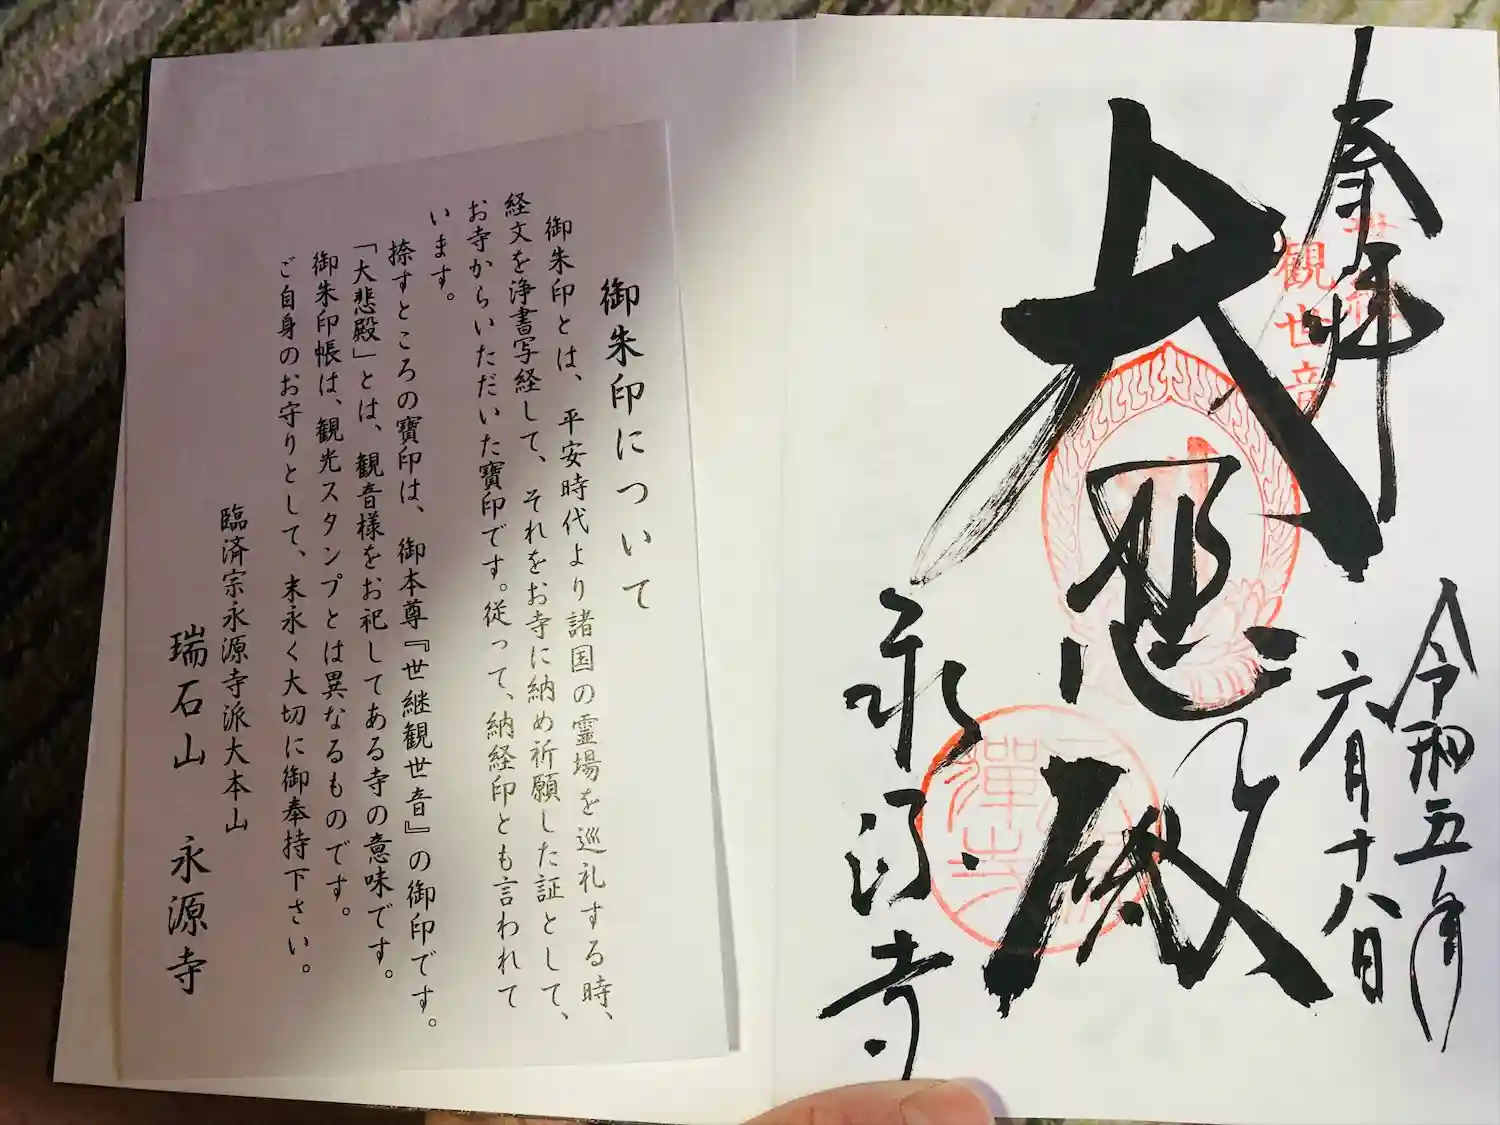 奉拝
世継
観世音
大悲殿
令和五年
六月十八日
永源寺
御朱印について
御朱印とは、平安時代より諸国の霊場を巡礼する時、
経文を浄書写経して、それをお寺に納め祈願した証として、
お寺からいただいた寶印です。従って、納経印とも言われて
います。
捺すところの寶印は、御本尊『世継観世音』の御印です。
「大悲殿」とは、観音様をお祀してある寺の意味です。
御朱印帳は、観光スタンプとは異なるものです。
ご自身のお守りとして、末永く大切に御奉持下さい。
臨済宗永源寺派大本山
瑞石山 永源寺